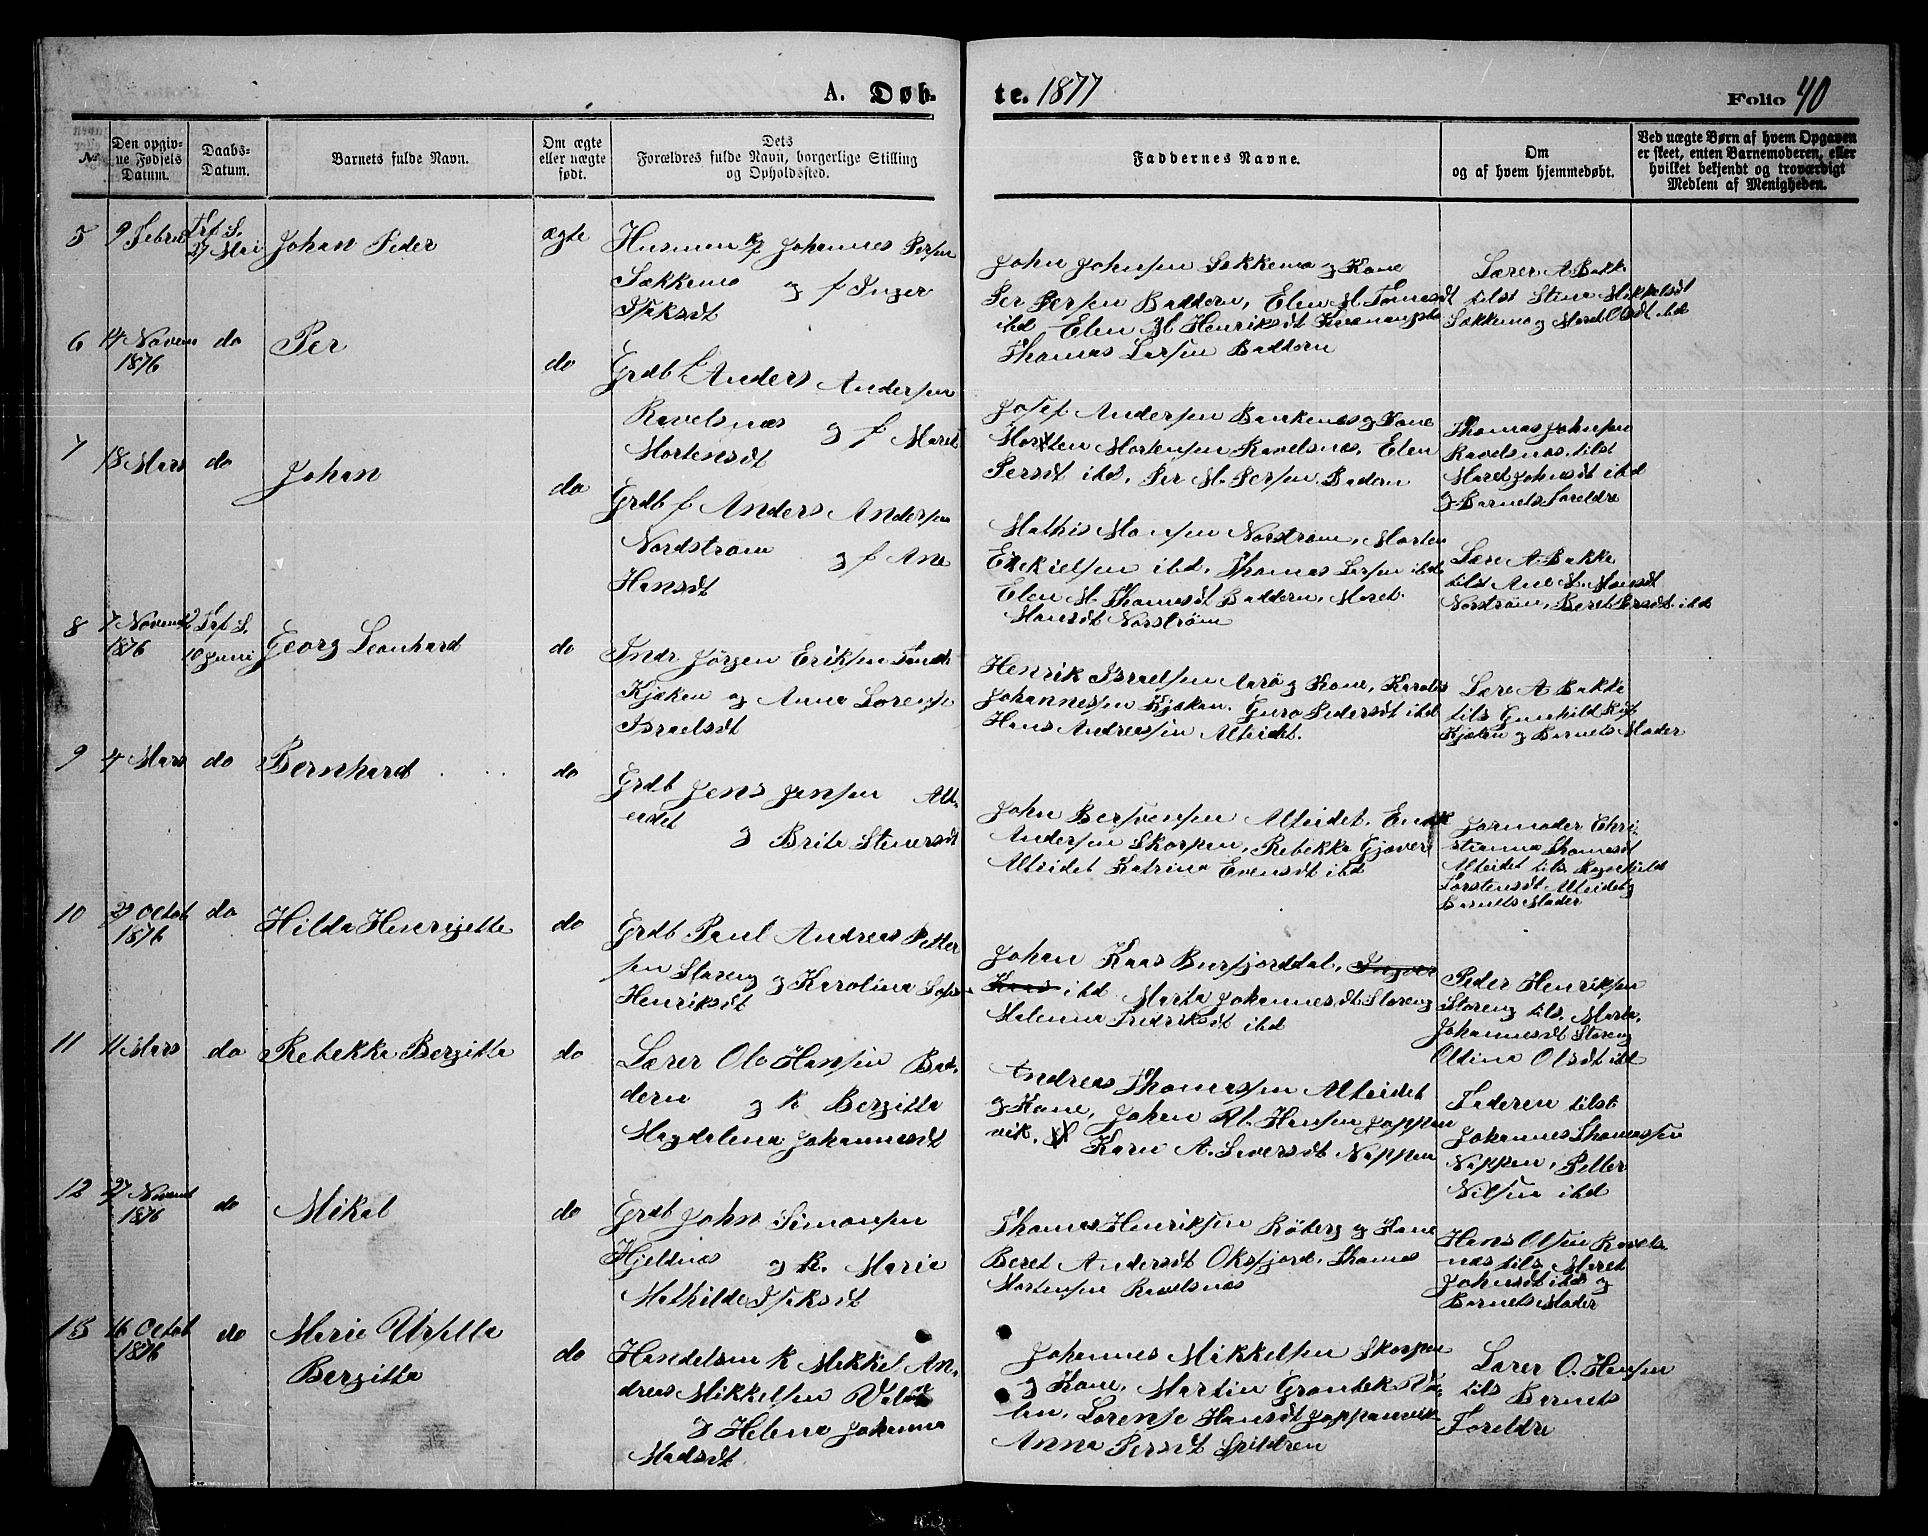 A. Døb-
te. 1877
Folio 40
№
Den opgiv-
ne Fødsels
Datum.
Daabs-
Datum.
Barnets fulde Navn.
Om ægte
eller nægte
født.
Dets
Forældres fulde Navn, borgerlige Stilling
og Opholdsted.
Faddernes Navne.
Om
og af hvem hjemmedøbt.
Ved nægte Børn af hvem Opgaven
er skeet, enten Barnemoderen, eller
hvilket bekjendt og troværdigt
Medlem af Menigheden.
5
9 Febru
27 Mai
Johan Peder
ægte
Husmen Johannes Persen
Sækkemo og f Inger
Isaksdt
John Johnsen Sækkemo og Kone
Per Persen Baddern, Elen M. Tomesdt
ibd, Elen M Henriksdt
Thomas Larsen Baddern
Lærer A. Bakk
tilst Stina Mikkelsdt
Sækkemo og Maret Olsdt ibd
6
14 Novem
1876
do
Per
do
Grdb f Anders Andersen
Ravelsnæs og f Maret
Mortensdt
Josef Andersen Bankenæs og Kone
Morten Mortensen Ravelsnæs, Elen
Persdt ibd, Per M. Persen Badern
Thomas Johnsen
Ravelsnæs tilst
Maret Johnsdt ibd
og Barnets Foreldre
7
18 Mars
do
Johan
do
Grdb f Anders Andersen
Nordstrøm og f Ane
Hansdt
Mathis Monsen Norstrøm, Morten
Ezekielsen ibd, Thomas Larsen ibd
Elen M. Thomesdt Baddern, Maret
Hansdt Norstrøm
Lære A. Bakke
tilst Ane M. Monsdt
Norstrøm, Beret Persdt ibd
8
7 Novemb
1876
2 Trf S.
10 Juni
Georg Leonhard
do
Indr Jørgen Eriksen
Kjækan og Anna Lorense
Israelsdt
Henrik Israelsen Aarø og Kone, Karoles
Johannessen Kjækan, Guro Pedersdt ibd
Hans Andreassen Alteidet.
Lære A Bakke
tils Gunhild
Kjækan og Barnets Moder
9
4 Mars
do
Bernhard
do
Grdb Jens Jensen Alt-
eidet
og Brita Stinersdt
John Bersvensen Alteidet, Enok
Andersen Skorpen, Rebekka Gjøver
Alteidet Katrina Evensdt ibd
Jormoder Chri
stianna Thomasdt
Alteidet tils Ragnhild
Torstensdt Alteidet og
Barnets Moder
10
27 Octob
1876
do
Hilda Henrijette
do
Grdb Paul Andreas Petter
sen Storeng og Karolina Sof
Henriksdt
Johan Kaas Bursfjorddal, Inger
Kaas ibd Marta Johannesdt Storeng
Malenna Fredriksdt ibd
Peder Henriksen
Storeng tils. Marta
Johannesdt Storeng
Oldina Olsdt ibd
11
11 Mars
do
Rebekka Bergitta
do
Lærer Ole Hansen Bad-
dern og K Bergitta
Magdalena Johannesdt
Andreas Thomassen Alteidet
og Kone, Johan M. Hansen Jøppen
vik. Karn A. Siversdt Nøppen
Faderen tilst
Johannes Thomassen
Nøppen, Petter
Nilsen ibd
12
27 Novemb
1876
do
Mikal
do
Grdb John Simonsen
Hjeltnes og K. Marie
Mathilde Isaksdt
Thomas Henriksen Røberg og Kone
Beret Andersdt Oksfjord, Thomas
Mortensen Ravelsnæs
Hans Olsen Ravels
næs tils Maret
Johnsdt ibd og
Barnets Moder
13
16 Octob
1876
do
Marie Ursella
Bergitta
do
Handelsm K Mikkel An-
dreas Mikkelsen
og Helena Johanna
Madsdt
Johannes Mikkelsen Skorpen
og Kone, Martin Grønbek
Lorense Hansdt Jøppenvik
Anna Persdt Spildren
Lærer O. Hansen
tils Barnets
Foreldre